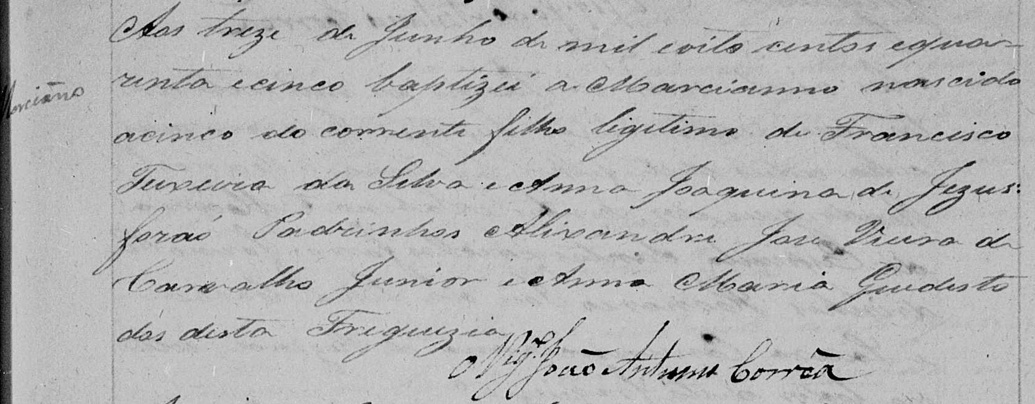 Aos treze de Junho de mil oito centos equa-
renta ecinco baptizei a Marcianno nascido
acinco do corrente filho ligitimo de Francisco
Teixeira da Silva e Anna Joaquina de Jezus:
forão Padrinhos Alixandre Jose Vieira de
Carvalho Junior e Anna Maria Guedesto
dos desta Freguizia
Marcianno
Vigrº João Antunes Corrêa